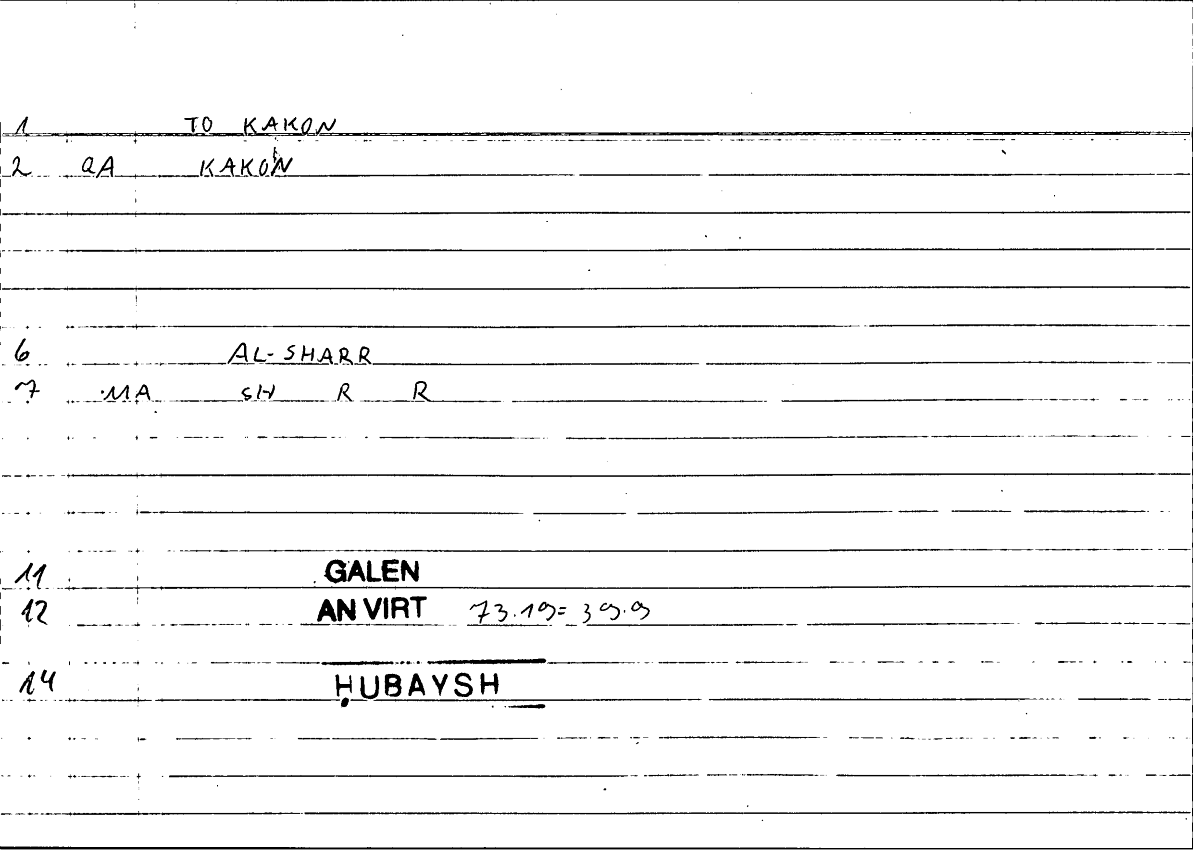 1 TO KAKON
2 QA KAKON
6 AL-SHARR
7 MA SH R R
11 GALEN
12 AN VIRT 73.19=39.9
14 ḤUBAYSH